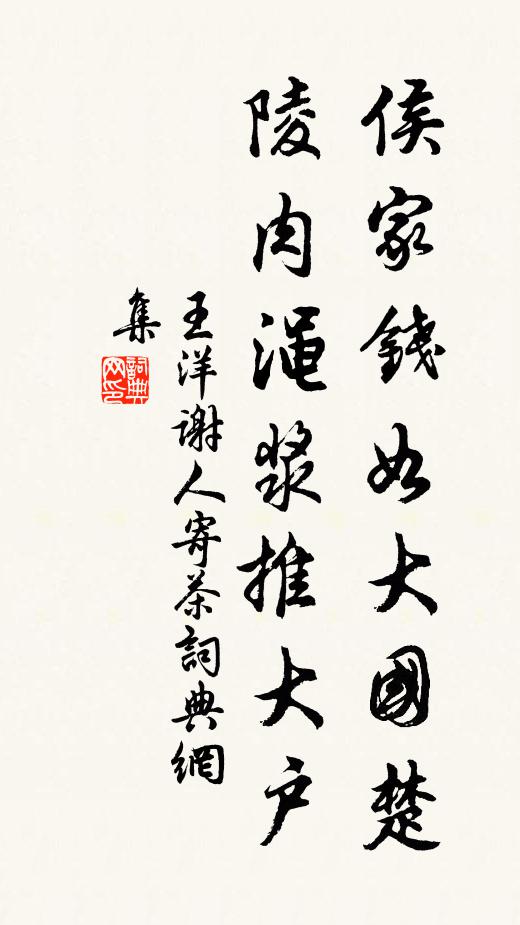 侯家錢如大國楚
陵肉澠漿推大戶
王洋謝人寄茶詞典網
集
詞典
网印